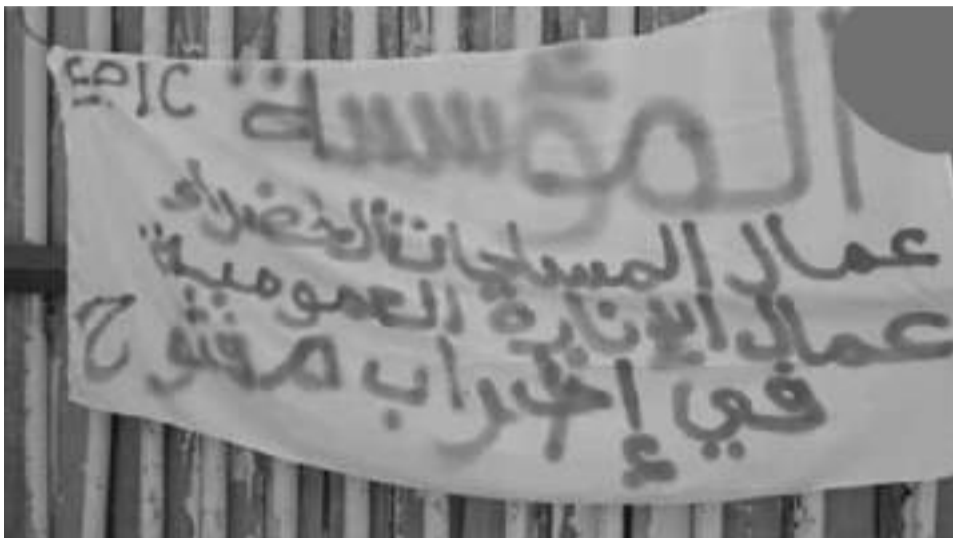 المؤسسة EPIC
عمال المساحات الخضراء
عمال الإنارة العمومية
في إظراب مفتوح